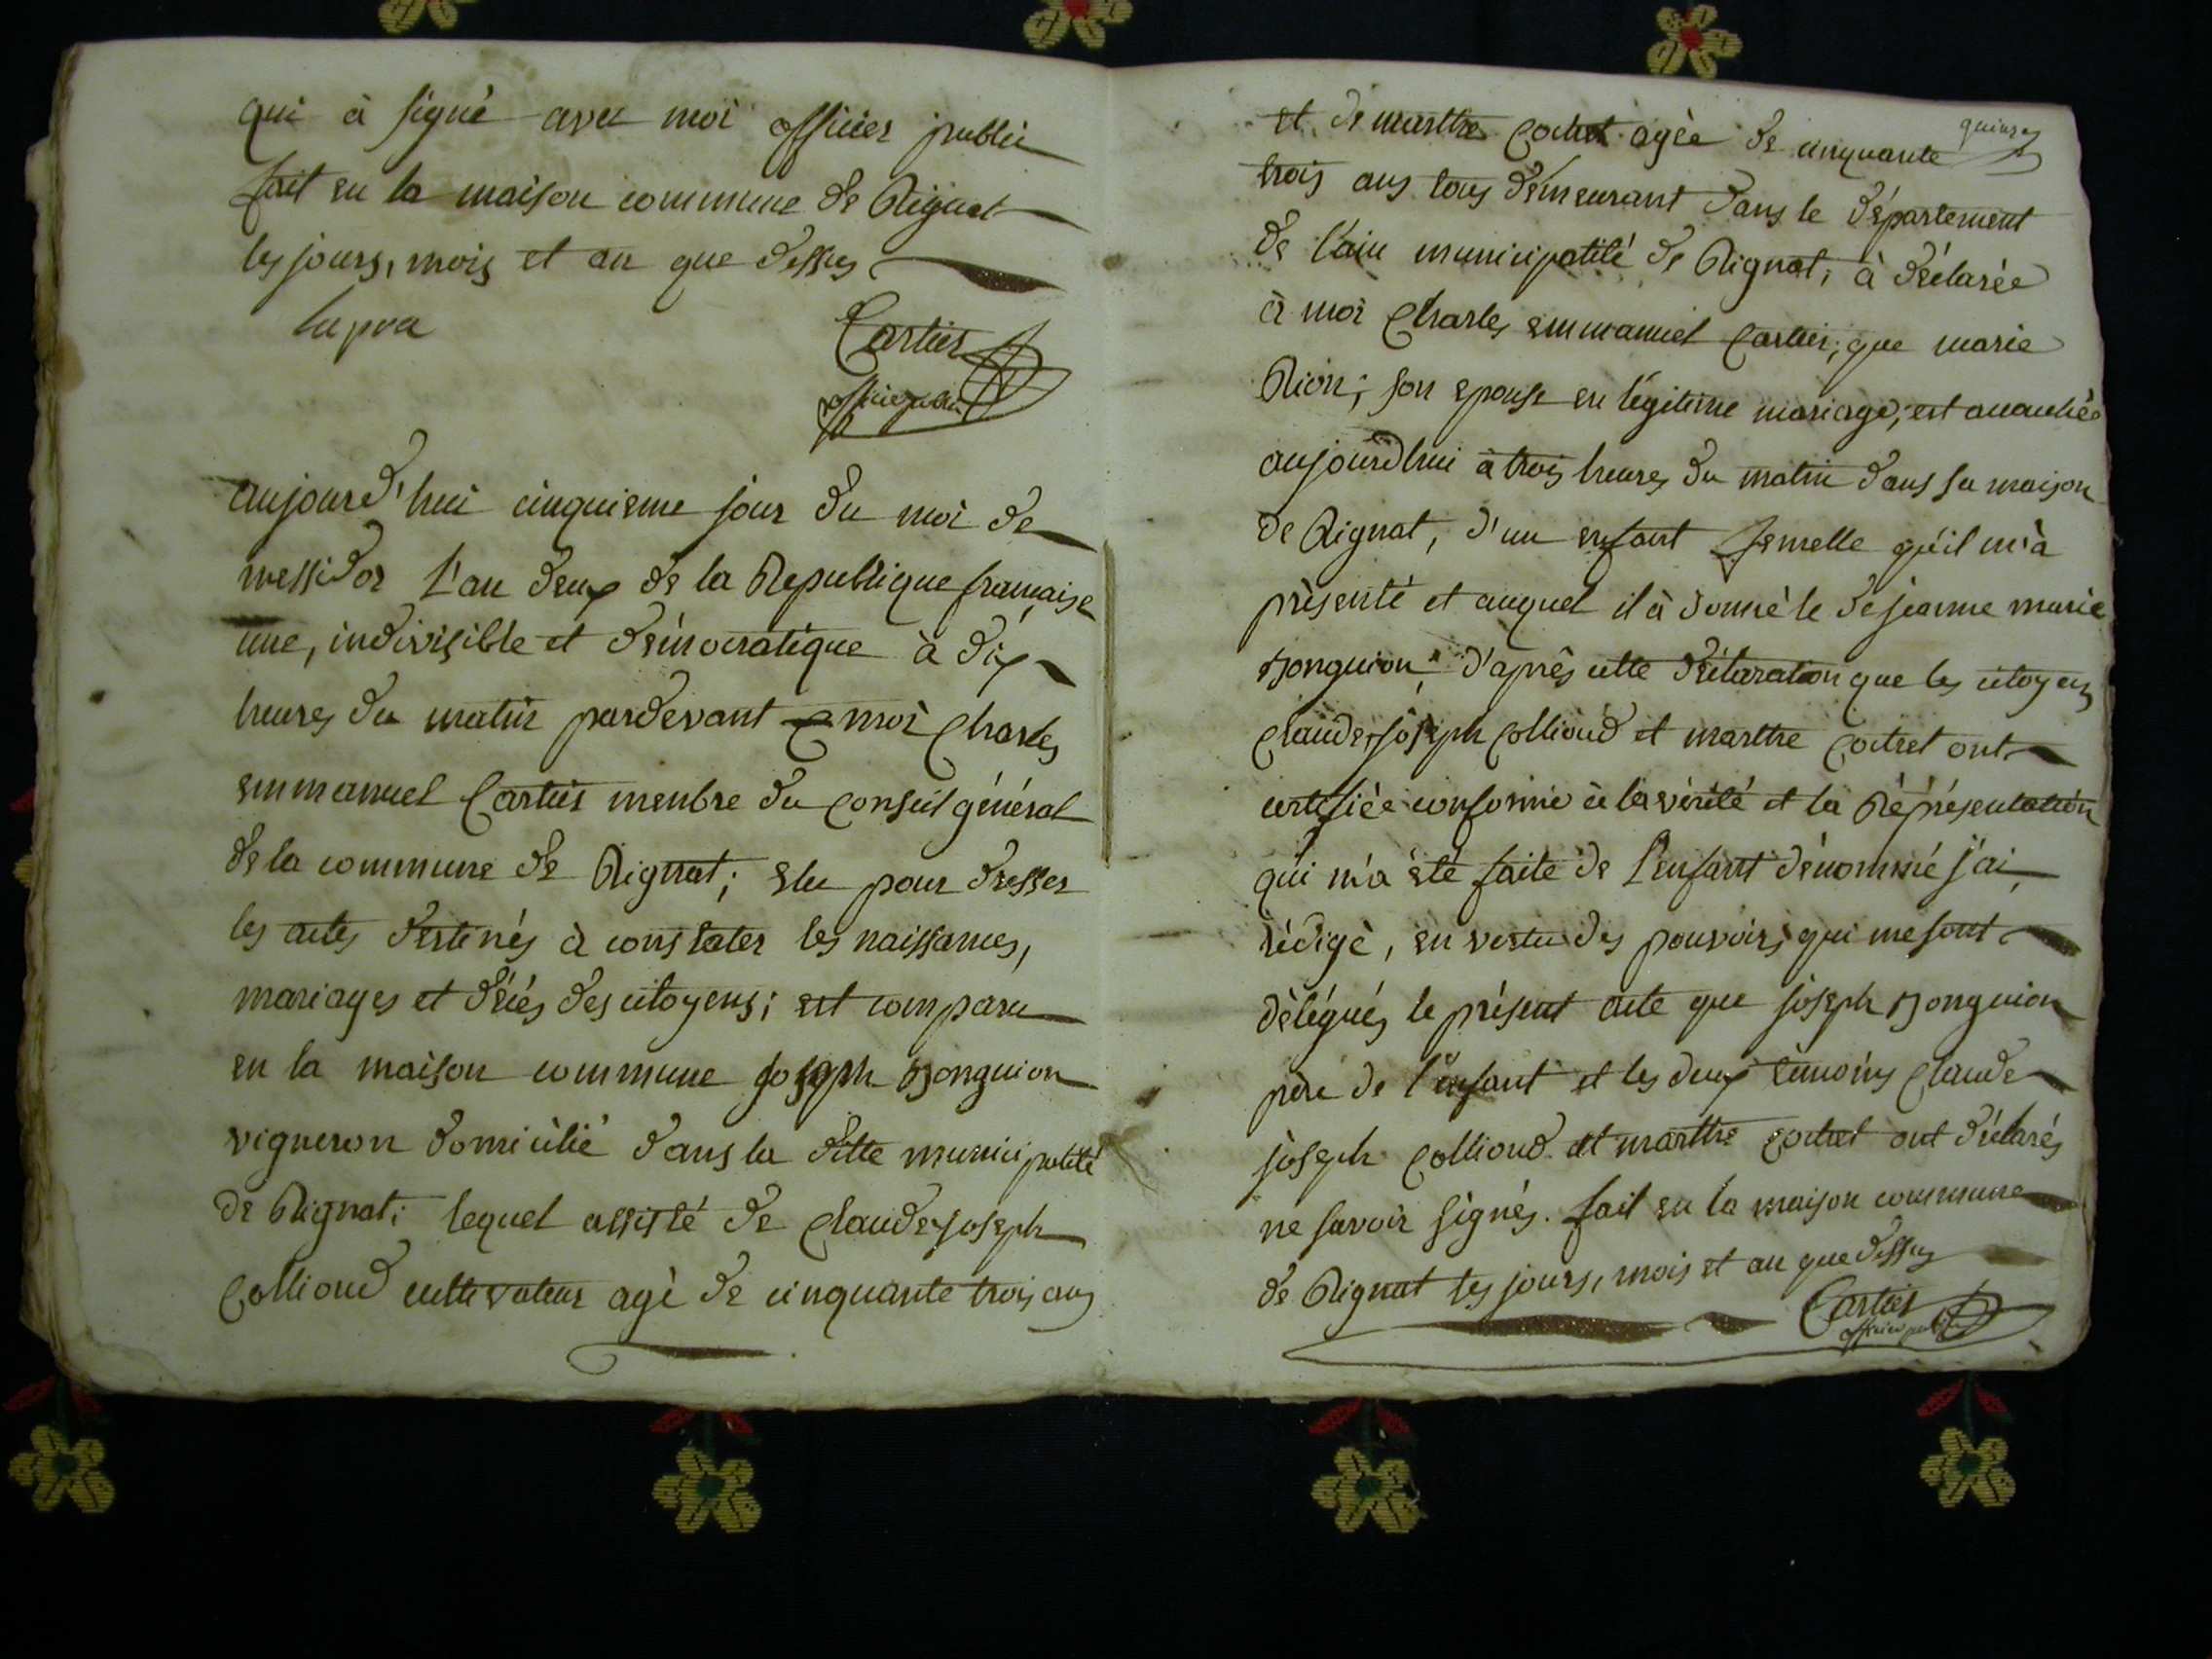 qui à signé avec moi officier public
fait en la maison commune de Rignat
les jours, mois et an que dessus
lupra
Cartier
officier public
aujourd'hui cinquieme jour du moi de
messidor L'an deux de la Republique française
une, indivisible et démocratique à dix
heures du matin pardevant moi Charles
emmanuel Cartier menbre du Conseil général
de la commune de Rignat; elu pour dresser
les actes destinés à constater les naissances,
mariages et décés des citoyens; est comparu
en la maison commune joseph Bonguion
vigneron domicilié dans la ditte municipalité
de Rignat; lequel assisté de Claude joseph
Collioud cultivateur agé de cinquante trois ans
quinze
et de marthe Cochet agée de cinquante
trois ans tous demeurant dans le département
de l'ain municipalité de Rignat, à déclarée
à moi Charles emmanuel Cartier, que marie
Rion; son epouse en légitime mariage, est accouchée
aujourdhui à trois heures du matin dans sa maison
de Rignat, d'un enfant femelle qu'il m'à
présenté et auquel il à donné le de jeanne marie
Bonguion; d'après cette déclaration que les citoyens
Claude joseph Collioud et marthe Cochet ont
certifiée conforme à la vérité et la Réprésentation
qui m'a été faite de L'enfant dénommé j'ai
rédigé, en vertu des pouvoirs qui me sont
délégués le présent acte que joseph Bonguion
pere de l'enfant et les deux temoins Claude
joseph Collioud et marthe Cochet ont déclarés
ne savoir signés. fait en la maison commune
de Rignat les jours, mois et an que dessus
Cartier
officier public